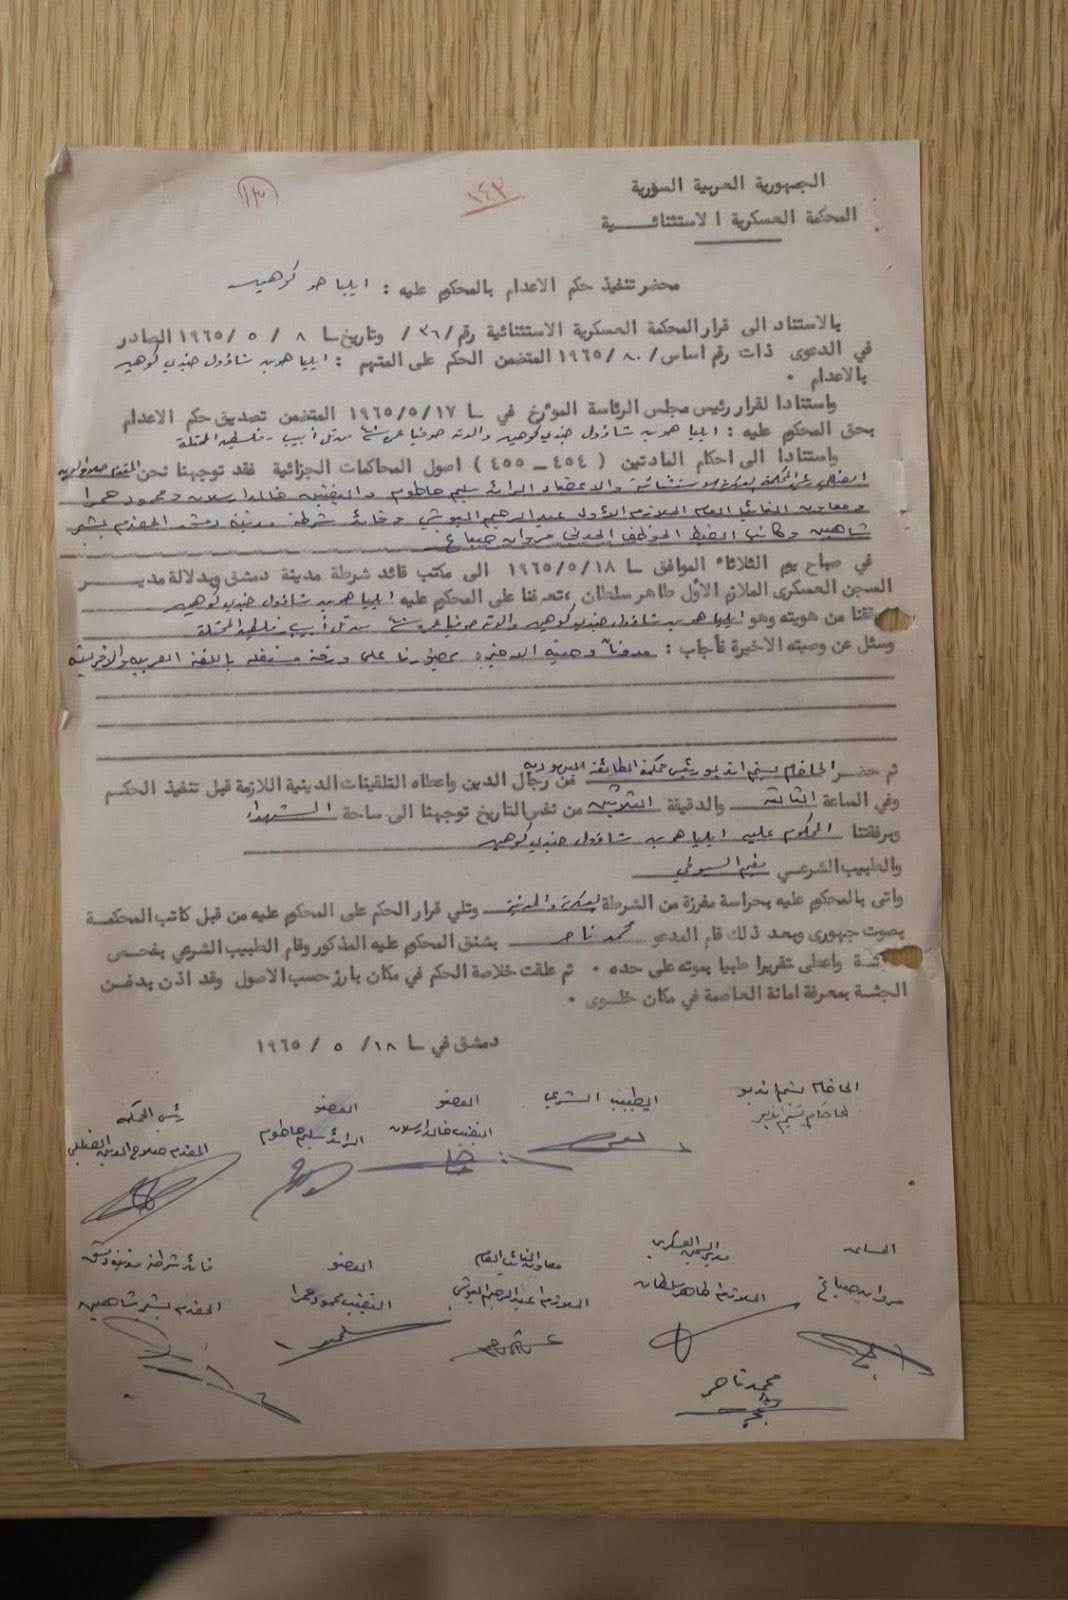 ١٤٣
١٣
الجمهورية العربية السورية
المحكمة العسكرية الاستثنائـــية
محضر تنفيذ حكم الاعدام بالمحكوم عليه : ايليا هو كوهين
بالاستناد الى قرار المحكمة العسكرية الاستثنائية رقم /٣٦/ وتاريخ ٨ / ٥ /١٩٦٥ الصادر
في الدعوى ذات رقم اساس /٨٠/١٩٦٥ المتضمن الحكم على المتهم : ايليا هو بن شاؤول جندي كوهين
بالاعدام .
واستنادا لقرار رئيس مجلس الرئاسة المؤرخ في ١٩٦٥/٥/١٧ المتضمن تصديق حكم الاعدام
بحق المحكوم عليه : ايليا هو بن شاؤول جندي كوهين والدته صوفيا من تل أبيب - فلسطين المحتلة
واستنادا الى احكام المادتين ( ٤٥٤ — ٤٥٥ ) اصول المحاكمات الجزائية فقد توجهنا نحن المقدم صلاح الدين
الضللي رئيس المحكمة العسكرية الاستثنائية والاعضاء الرائد سليم حاطوم والنقيبين خالد ارسلان ومحمود حمرا
ومعاون النائب العام الملازم الأول عبد الرحيم وقائد شرطة مدينة دمشق المقدم بشير
شاهين وكاتب الضبط الموظف المدني مروان صباغ
في صباح يوم الثلاثاء الموافق ١٩٦٥/٥/١٨ الى مكتب قائد شرطة مدينة دمشق وبدلالة مديـــر
السجن العسكرى الملازم الأول طاهر سلطان ، تعرفنا على المحكوم عليه ايليا هو بن شاؤول جندي كوهين
من هويته وهو ايليا هو بن شاؤول جندي كوهين والدته صوفيا من تل أبيب فلسطين المحتلة
وسئل عن وصيته الاخيرة فأجاب : مدوناً وصيته الاخيرة بحضورنا على ورقة مستقلة باللغة العربية والافرنسية
ثم حضر الحاخام نسيم اندبو رئيس محكمة الطائفة اليهودية من رجال الدين واعطاه التلقينات الدينية اللازمة قبل تنفيذ الحكم
وفي الساعة الثالثة والدقيقة الثلاثين من نفس التاريخ توجهنا الى ساحة الشهدا
وبرفقتنا المحكوم عليه ايليا هو بن شاؤول جندي كوهين
والطبيب الشرعي
واتى بالمحكوم عليه بحراسة مفرزة من الشرطة العسكرية والمدنية وتلي قرار الحكم على المحكوم عليه من قبل كاتب المحكمة
بصوت جهورى وبعد ذلك قام المدعو محمد ناصر بشنق المحكوم عليه المذكور وقام الطبيب الشرعي بفحص
واعطى تقريرا طبيا بموته على حده . ثم علقت خلاصة الحكم في مكان بارز حسب الاصول وقد اذن بدفـن
الجثـة بمعرفة امانة العاصمة في مكان خلوى .
دمشق في ١٨/ ٥ / ١٩٦٥
الحاخام نسيم اندبو
الطبيب الشرعي
العضو
النقيب خالد ارسلان
العضو
الرائد سليم حاطوم
رئيس المحكمة
المقدم صلاح الدين الضللي
مروان صباغ
مدير السجن العسكري
الملازم ا طاهر سلطان
معاون النائب العام
الملازم ا عبد الرحيم
العضو
النقيب محمود حمرا
قائد شرطة مدينة دمشق
المقدم بشير شاهين
محمد ناصر